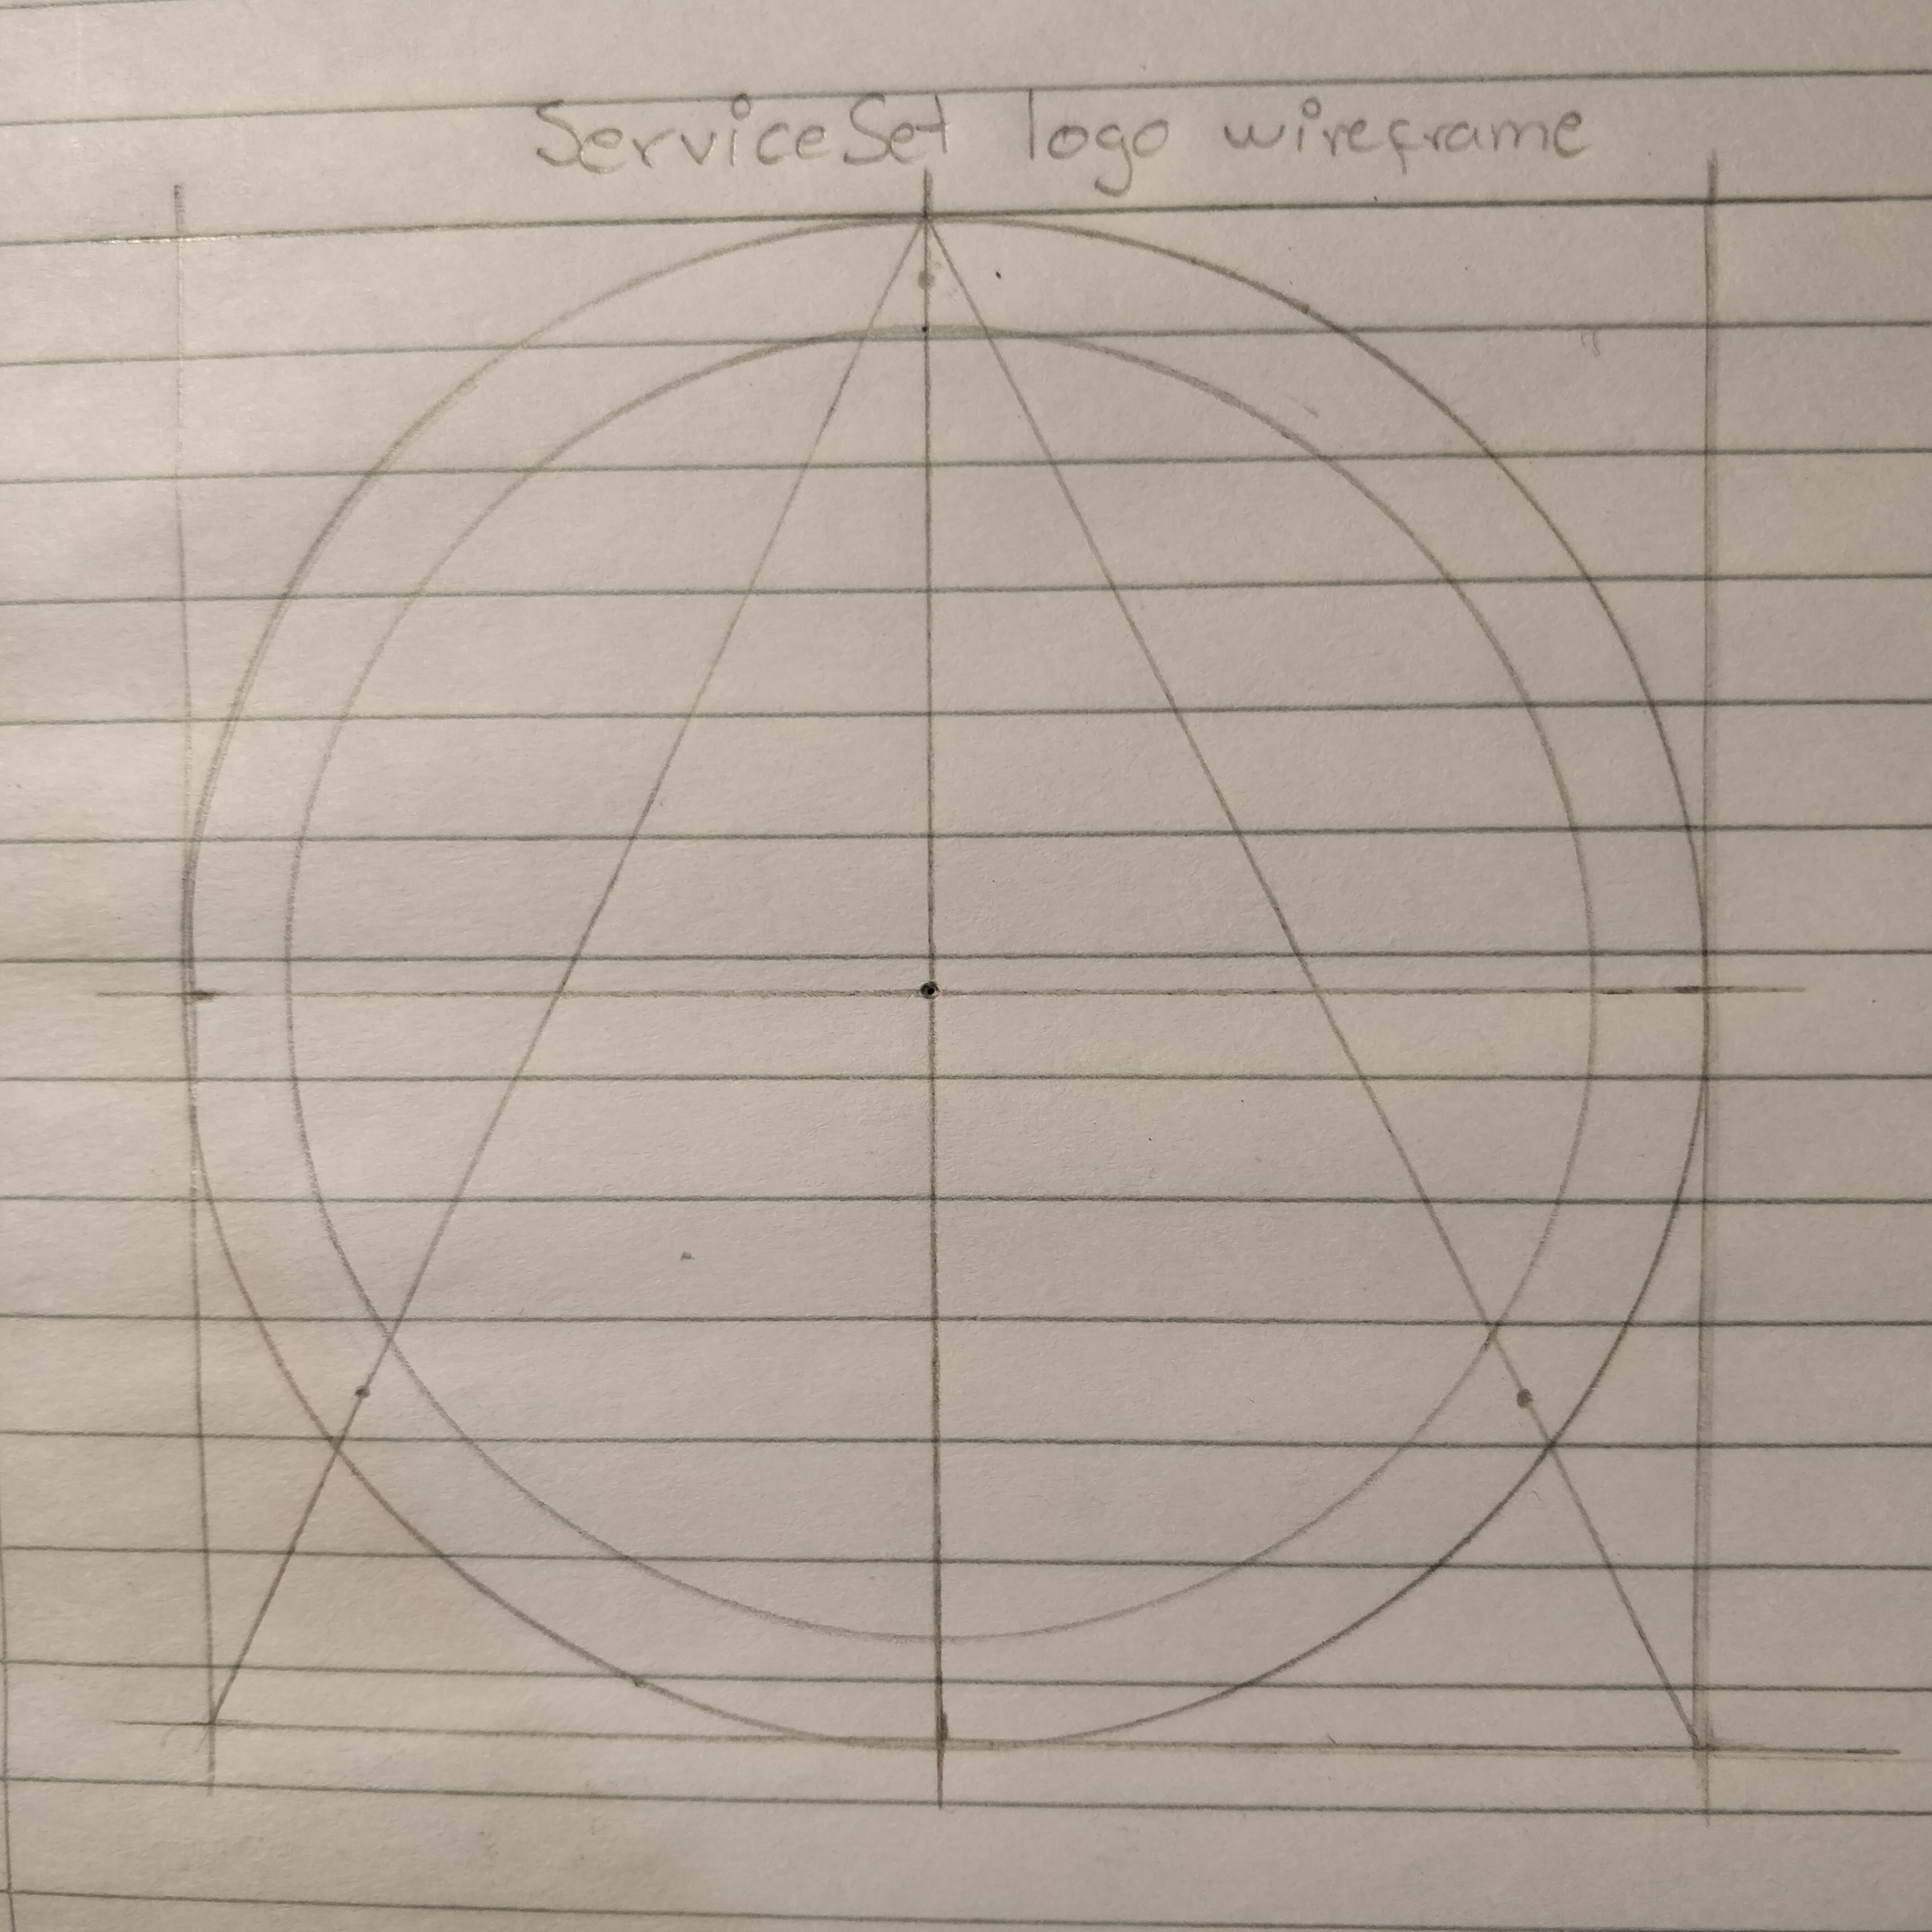 ServiceSet logo wireframe